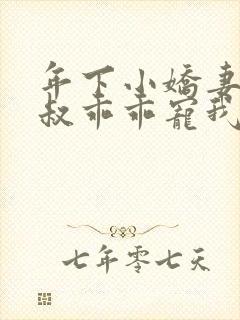 年下小嬌妻
叔乖乖寵我
七年零七天